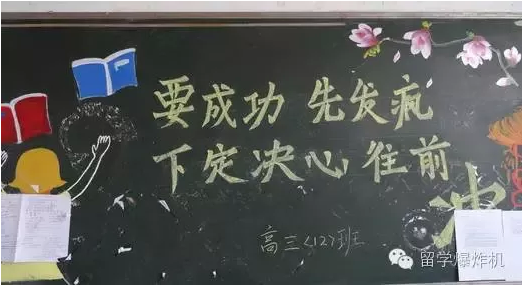 要成功 先发疯
下定决心 往前
冲
高三<12>班
留学爆炸机